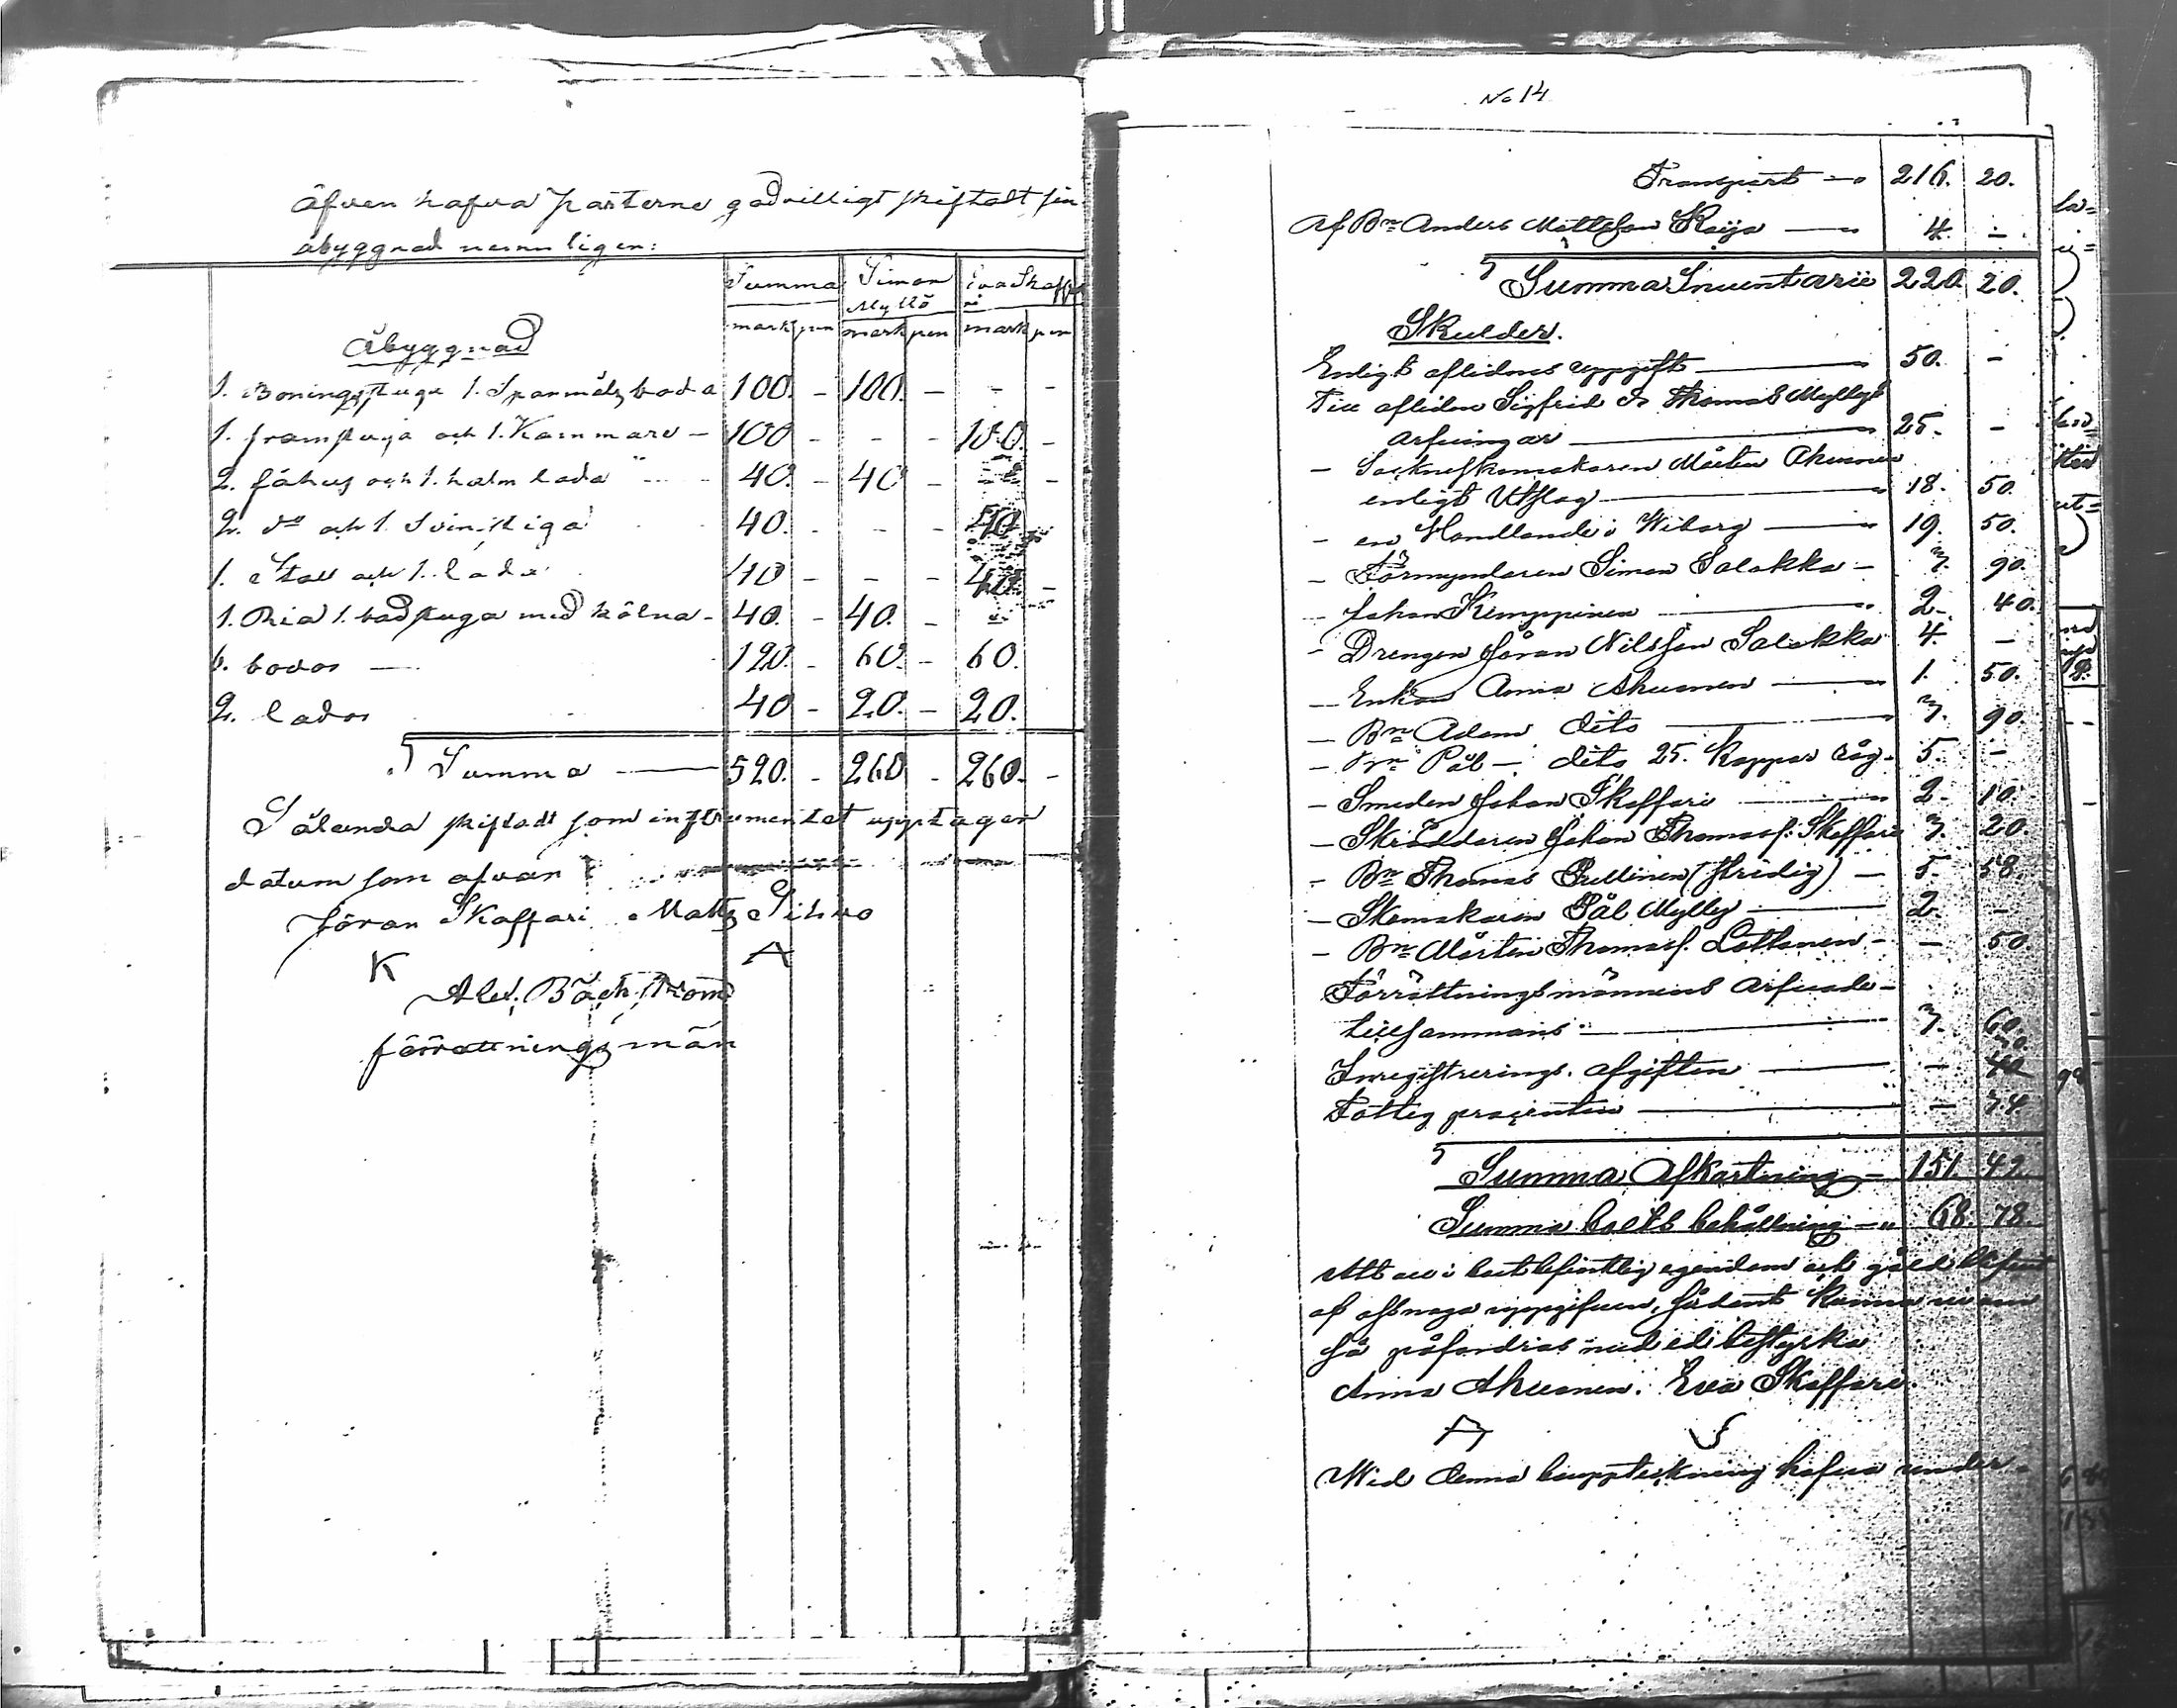 Äfven hafva parterne godvilligt skiftatt sin
åbyggnad nemnligen:
Summa Simon Myllö Eva Skaffari
mark pen mark pen mark pen
Åbyggnad
1. Boningsstuga 1. Spanmåls boda 100. - 100. - - -
1. framstuga och 1. Kammare - 100 - - - 100. -
2. fähus och 1. halm lada 40. - 40 - - -
2. do och 1. Svinstiga 40. - - - 40
1. Stall och 1. lada 40 - - - 40 -
1. Ria 1. badstuga med kölna - 40. - 40. -
6. bodor 120. - 60. - 60.
2. lador 40 - 20. - 20.
Summa 520. - 260 - 260. -
Sålunda skiftadt som instrumentet upptager
datum som ofvan
Jöran Skaffari Matts Sihvo
K A
Alex. Bäckström
förrättningsmän
No 14
Transport 216. 20.
Af Bn Anders Mattsson Raija 4. -
Summa Inventarie 220. 20.
Skulder.
Enligt aflidnes uppgift 50. -
Till aflidne Sigfrid ds Thomas Myllys
arfvingar 25. -
- Sockneskomakaren Mårten Ahvonen
enligt Utslag 18. 50.
- en Handlande i Wiborg 19. 50.
- Förmyndaren Simon Salakka - 7. 90.
- Johan Kemppinen 2. 40.
- Drengen Jöran Nilsson Salakka 4. -
- Enkan Anna Ahvonen 1. 50.
- Bn Adam dito 7. 90.
- Bn Pål - dito 25. Kappar råg - 5. -
- Smeden Johan Skaffari 2. 10.
- Skräddaren Johan Thomass. Skaffari 7. 20.
- Bn Thomas Pullinen (stridig) - 5. 58.
- Skomakaren Pål Mylly 2. -
- Bn Mårten Thomass. Lattonen - - 50.
Förrättningsmännens arfvode -
tillsammans 7. 60.
Inregistrerings. afgiften - 40
Fattig procenten - 74.
Summa Afkortning - 151. 42.
Summa boets behållning 68. 78.
Att all i boet befintlig egendom och gäld blifvit
af oss noga uppgifven, sådant kunna vi om
så påfordras med ed bestyrka
Anna Ahvonen. Eva Skaffari.
Wid denna bouppteckning hafva under-